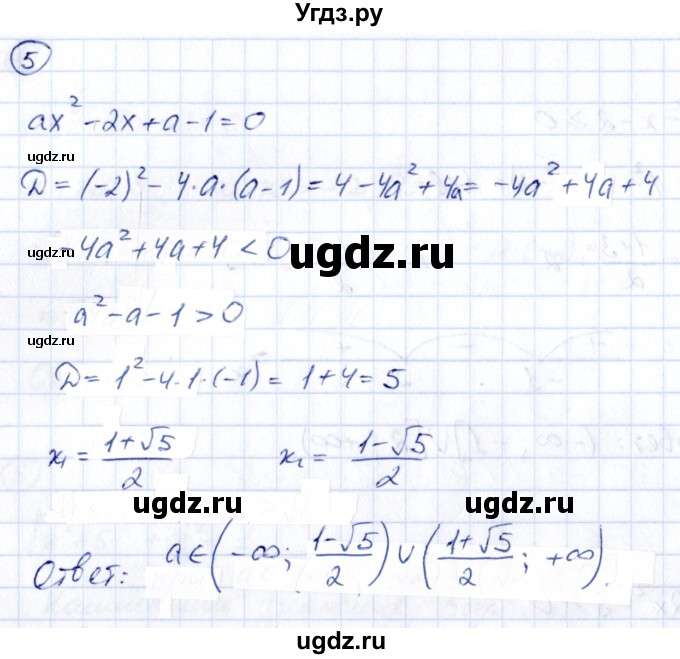 Угдз.ру
5
ax² - 2x + a - 1 = 0
ugdz.ru
ugdz.ru
D = (-2)² - 4·a·(a-1) = 4 - 4a² + 4a = -4a² + 4a + 4
ugdz.ru
-4a² + 4a + 4 < 0
ugdz.ru
a² - a - 1 > 0
ugdz.ru
ugdz.ru
D = 1² - 4·1·(-1) = 1 + 4 = 5
x₁ = (1+√5)/2 x₂ = (1-√5)/2
ugdz.ru
ugdz.ru
Ответ: a∈(-∞; (1-√5)/2)∪((1+√5)/2; +∞).
ugdz.ru